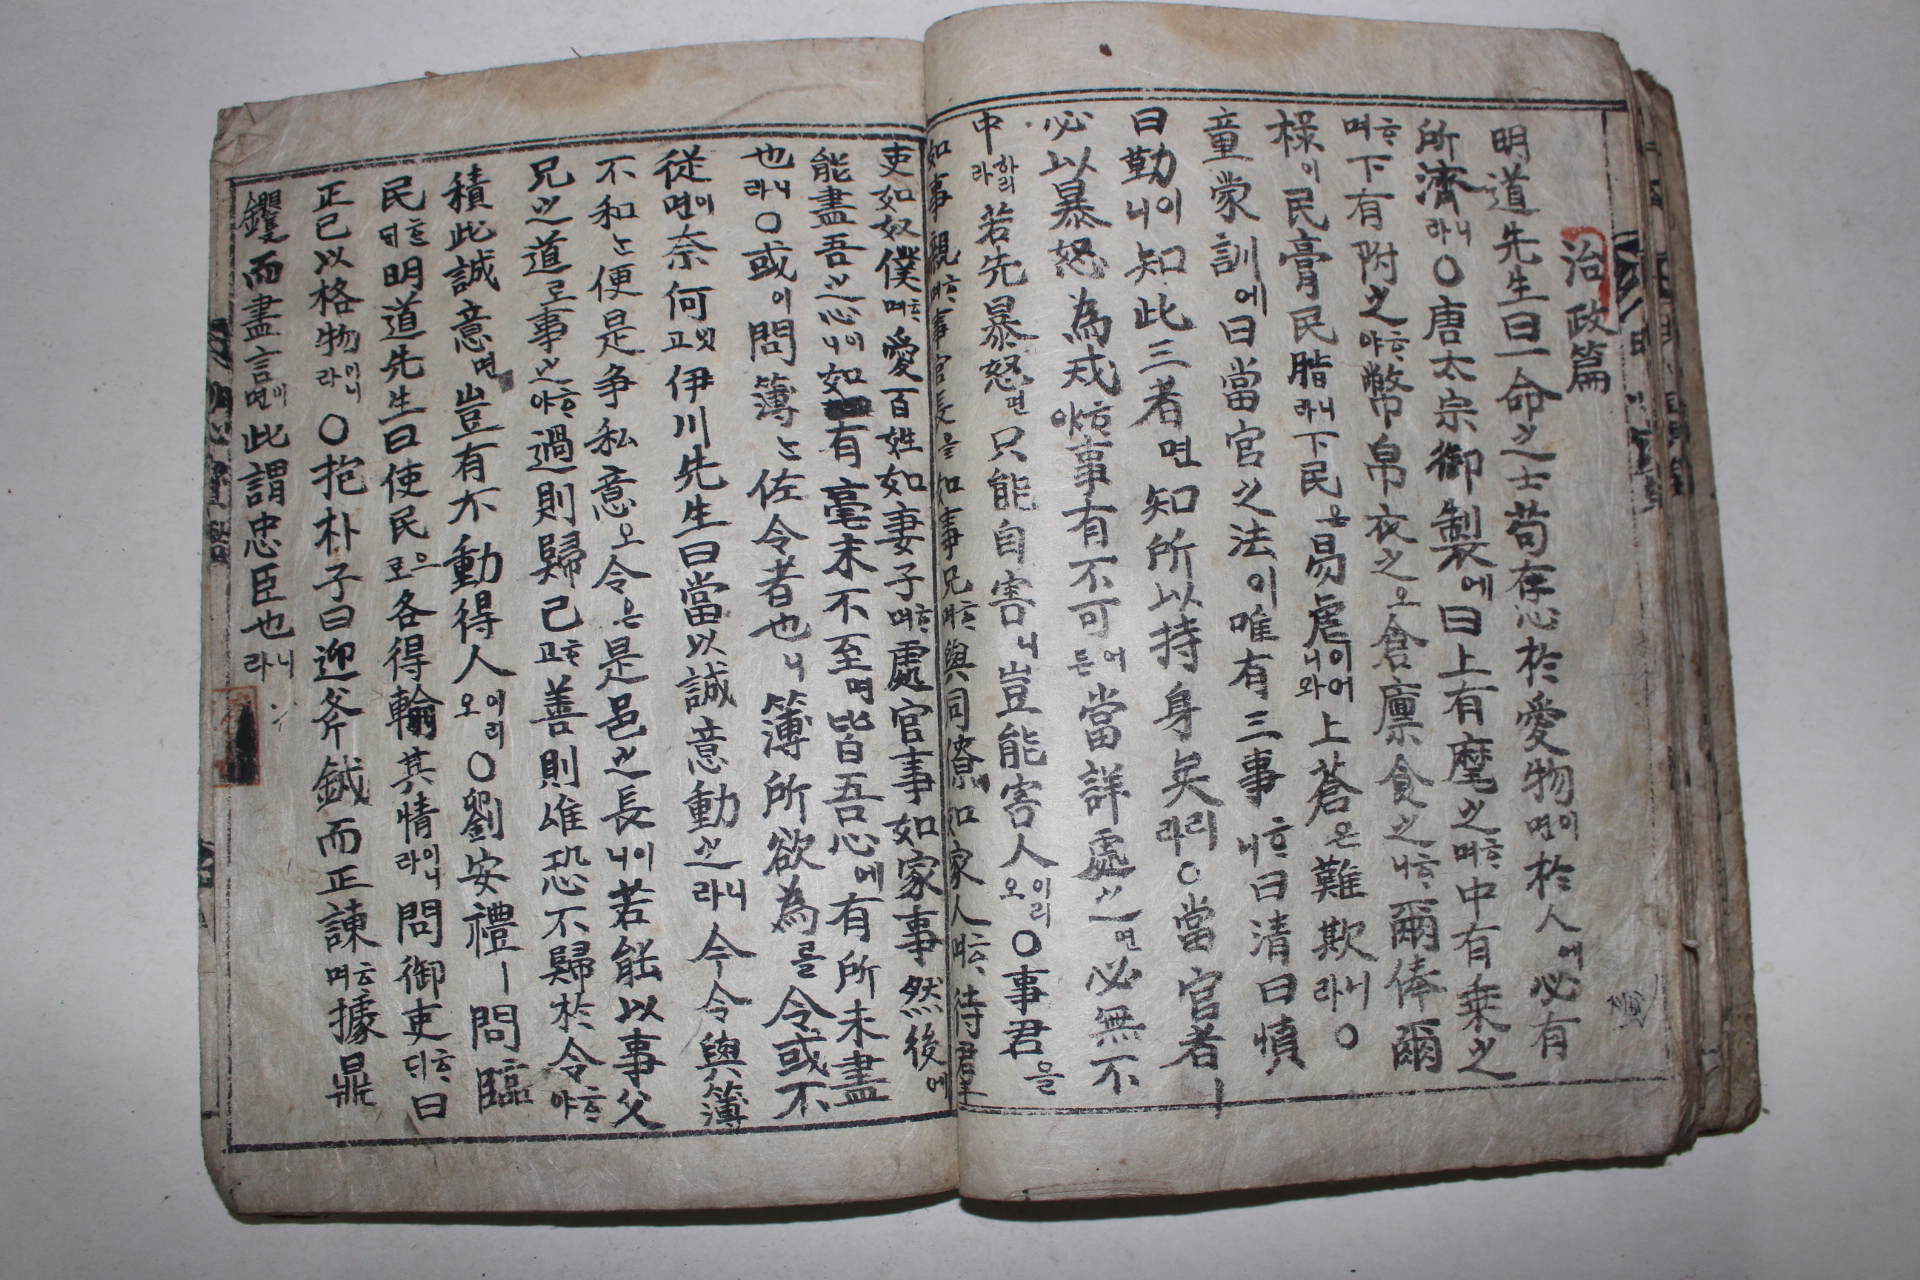 治政篇
明道先生曰一命之士苟存心於愛物이면於人에必有
所濟라니〇唐太宗御製에曰上有麾之며ᄒᆞ中有乗之
며ᄒᆞ下有附之야ᄒᆞ幣帛衣之오倉廩食之니ᄒᆞ爾俸爾
祿이民膏民脂라니下民은易虐이어니와上蒼은難欺라니〇
童蒙訓에曰當官之法이唯有三事니ᄒᆞ曰清曰慎
曰勤이니知此三者면知所以持身矣라리〇當官者ㅣ
必以暴怒為戒야ᄒᆞ事有不可어든當詳處之면必無不
中하리라若先暴怒면只能自害니豈能害人이리오〇事君을
如事親며ᄒᆞ事官長을如事兄며ᄒᆞ與同僚如家人며ᄒᆞ待羣
吏如奴僕며ᄒᆞ愛百姓如妻子며ᄒᆞ處官事如家事然後에
能盡吾之心니이如有毫末不至면皆吾心에有所未盡
也라니〇或이問簿는佐令者也니簿所欲為를令或不
從면이奈何고잇伊川先生曰當以誠意動之라니今令與簿
不和는便是争私意오令은是邑之長니이若能以事父
兄之道로事之야ᄒᆞ過則歸己고ᄒᆞ善則唯恐不歸於令야ᄒᆞ
積此誠意면豈有不動得人이리오〇劉安禮ㅣ問臨
民ᄃᆡᄒᆞᆫ明道先生曰使民로으各得輸其情라이니問御吏ᄃᆡᄒᆞᆫ曰
正己以格物라이니〇抱朴子曰迎斧鉞而正諫며ᄒᆞ據鼎
鑊而盡言면이此謂忠臣也라니